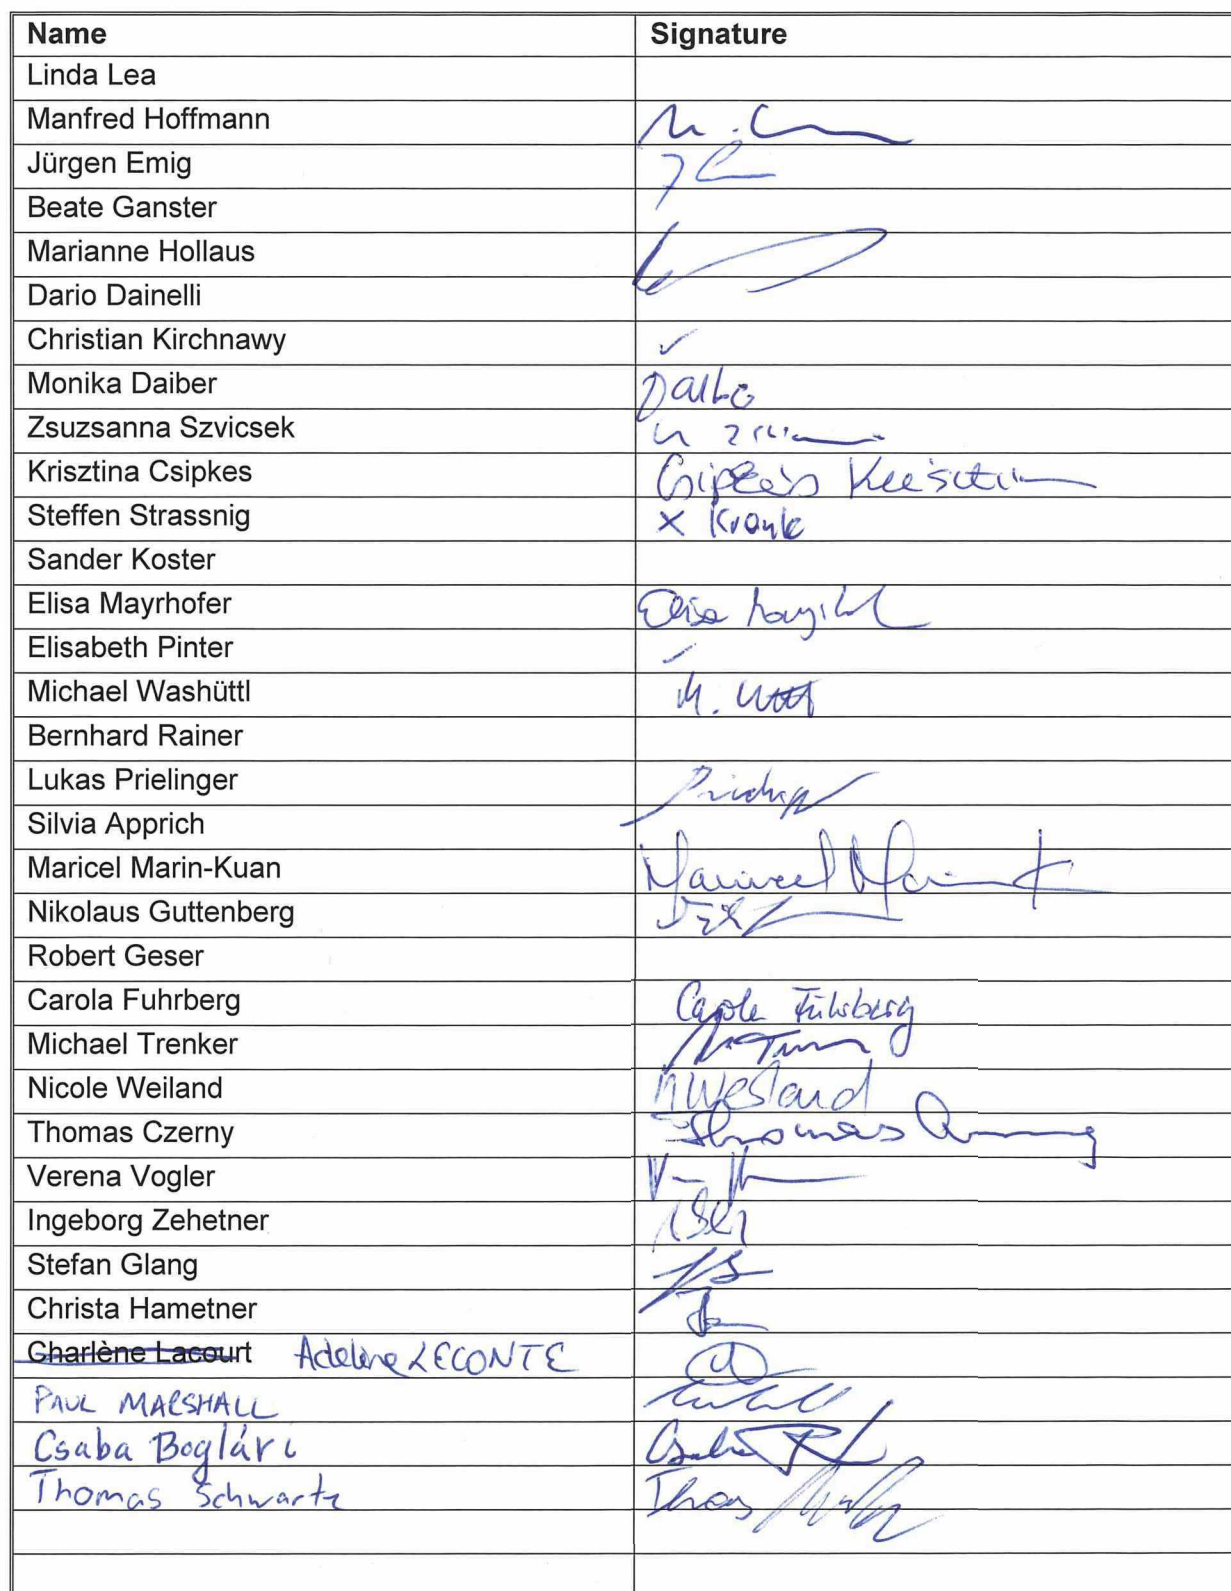 Name Signature
Linda Lea
Manfred Hoffmann
Jürgen Emig
Beate Ganster
Marianne Hollaus
Dario Dainelli
Christian Kirchnawy ✓
Monika Daiber
Zsuzsanna Szvicsek
Krisztina Csipkes
Steffen Strassnig x Krank
Sander Koster
Elisa Mayrhofer Elisa
Elisabeth Pinter
Michael Washüttl M.
Bernhard Rainer
Lukas Prielinger
Silvia Apprich
Maricel Marin-Kuan Maricel
Nikolaus Guttenberg
Robert Geser
Carola Fuhrberg Carola Fuhrberg
Michael Trenker
Nicole Weiland NWeiland
Thomas Czerny Thomas
Verena Vogler
Ingeborg Zehetner
Stefan Glang
Christa Hametner
Charlène Lacourt Adeline LECONTE
PAUL MARSHALL
Csaba Boglári Csaba
Thomas Schwartz